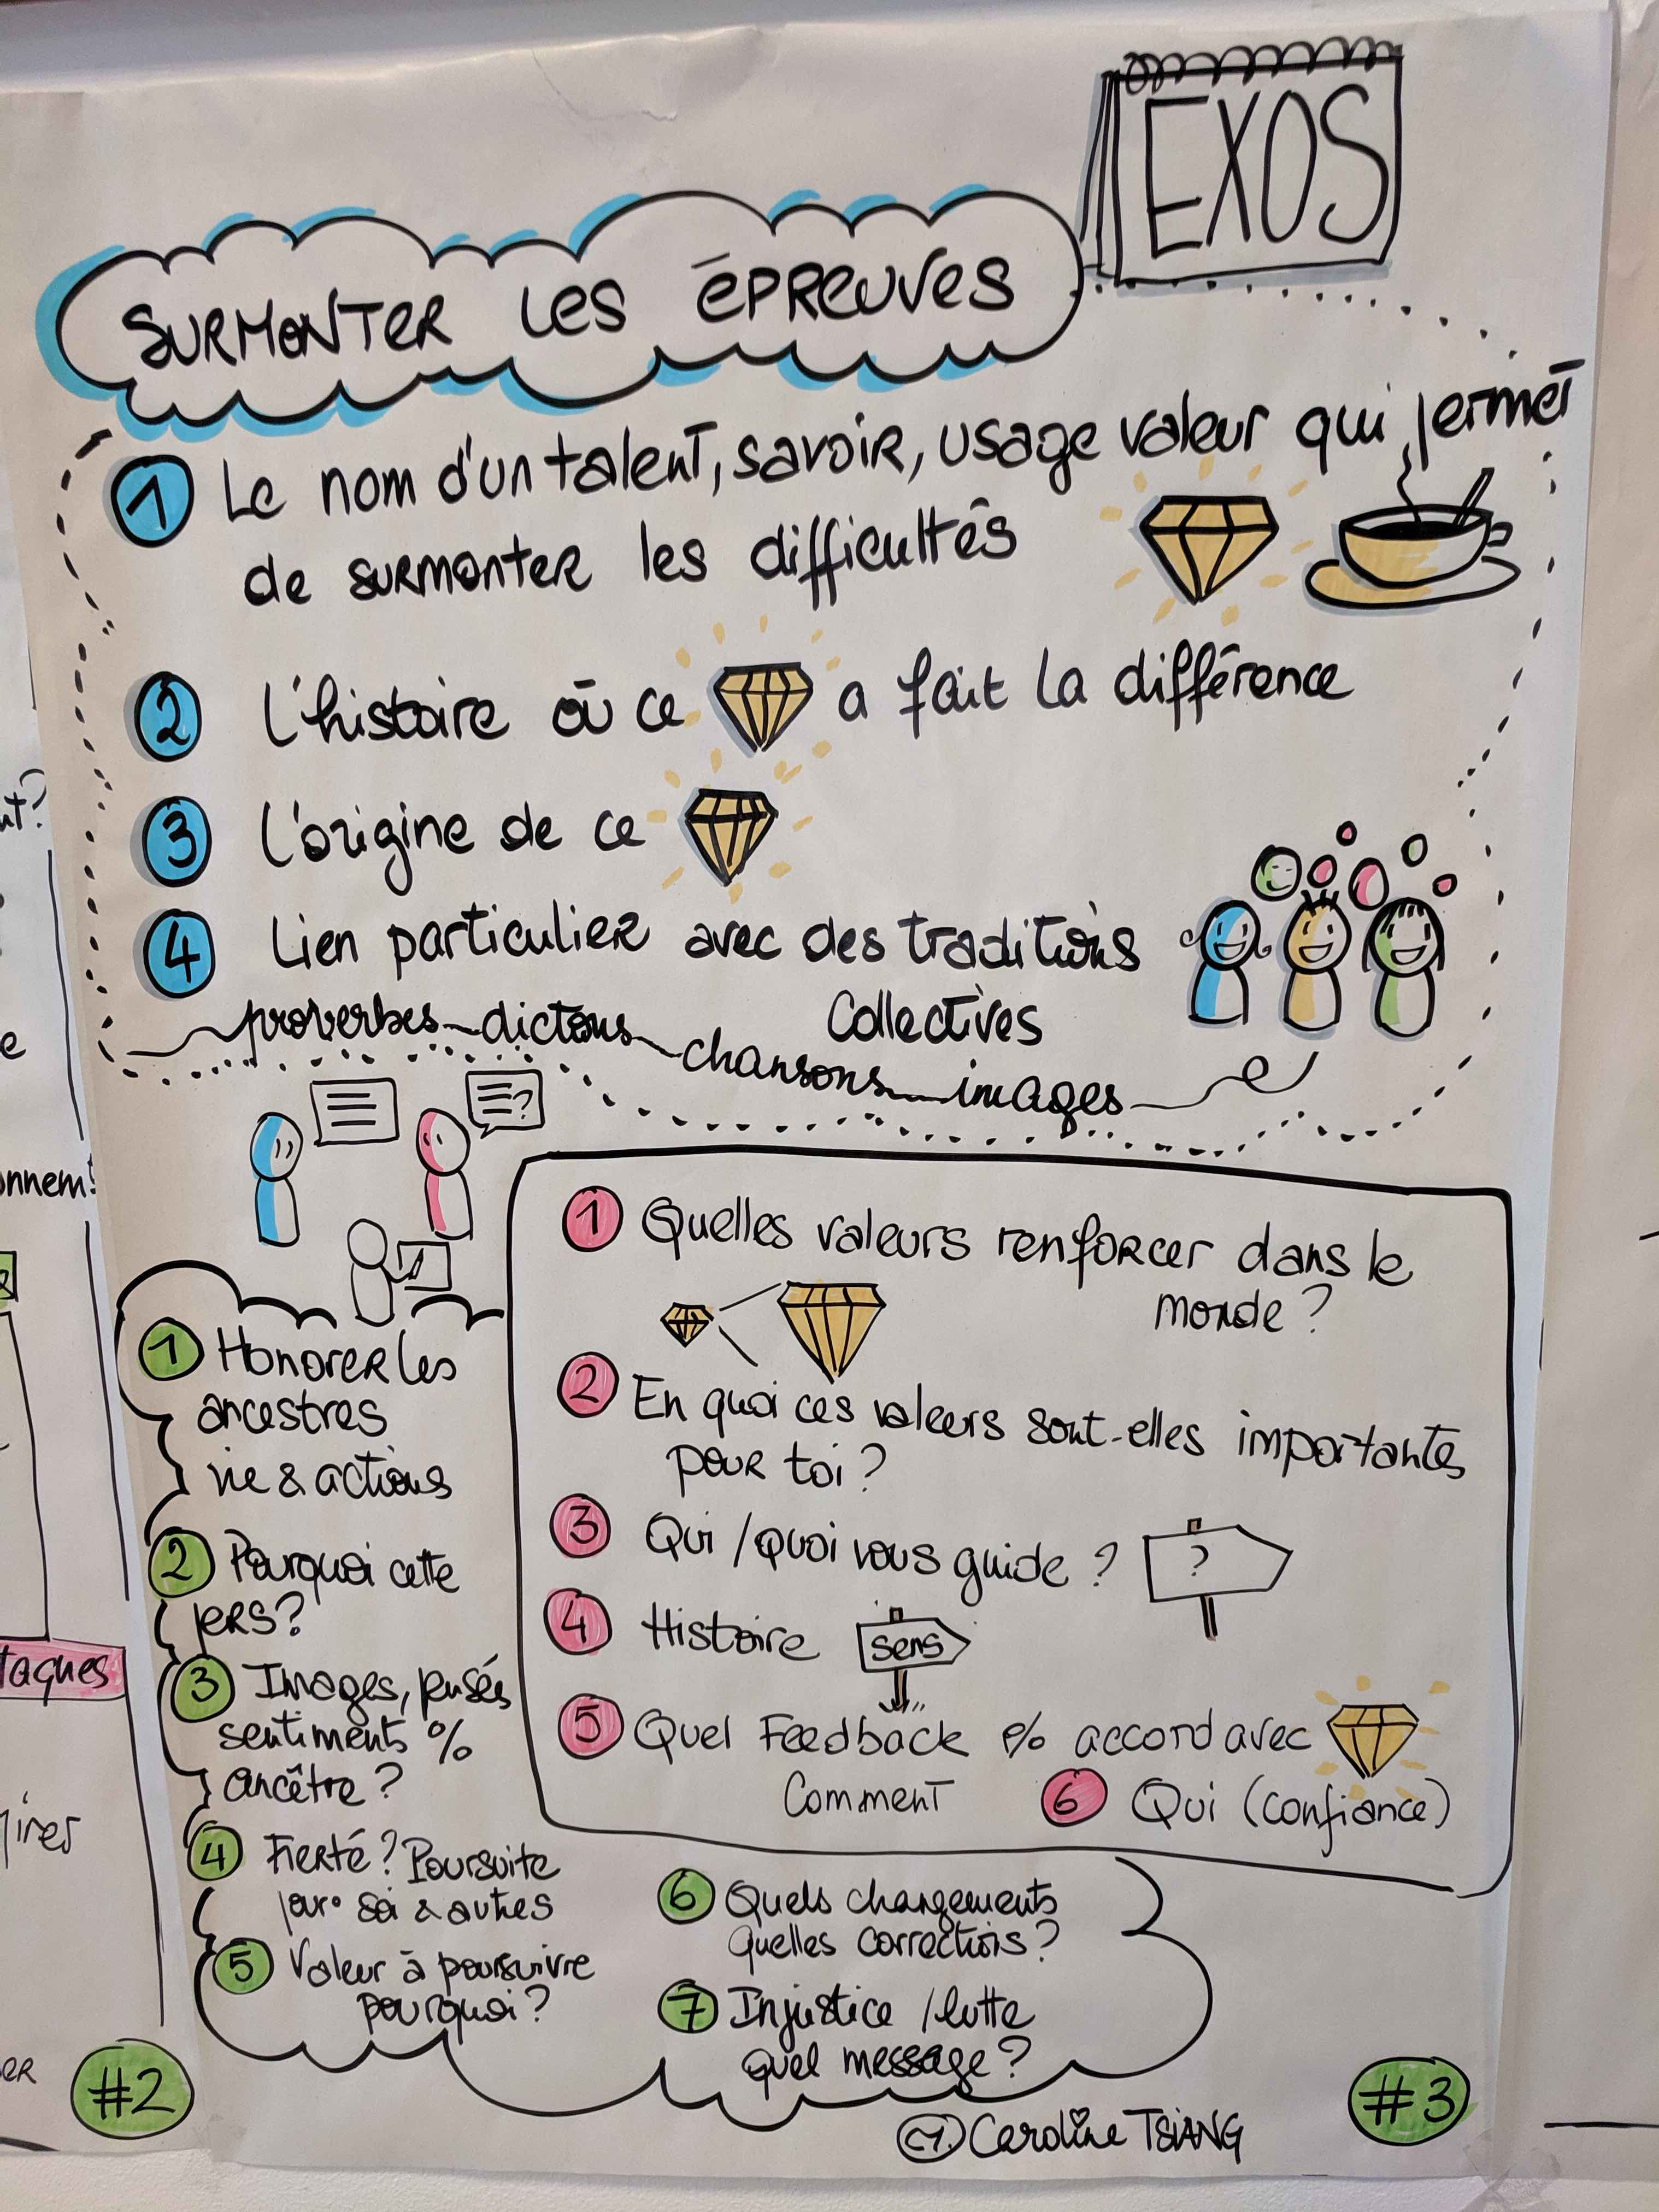 EXOS
SURMONTER LES ÉPREUVES
1 Le nom d'un talent, savoir, usage valeur qui permet
de surmonter les difficultés
2 L'histoire où ce a fait la différence
3 L'origine de ce
4 Lien particulier avec des traditions
Collectives
proverbes dictons chansons images
?
1 Quelles valeurs renforcer dans le
monde ?
2 En quoi ces valeurs sont-elles importantes
pour toi ?
3 Qui / quoi vous guide ? ?
4 Histoire sens
5 Quel Feedback % accord avec
Comment 6 Qui (confiance)
1 Honorer les
ancestres
vie & actions
2 Pourquoi cette
pers ?
3 Images, pensés
sentiments %
ancêtre ?
4 Fierté ? Poursuite
pour soi & autres
5 Valeur à poursuivre
pourquoi ?
6 Quels changements
quelles corrections ?
7 Injustice / lutte
quel message ?
Caroline TSIANG
#3
#2
ut?
e
onnemt
taques
irer
er